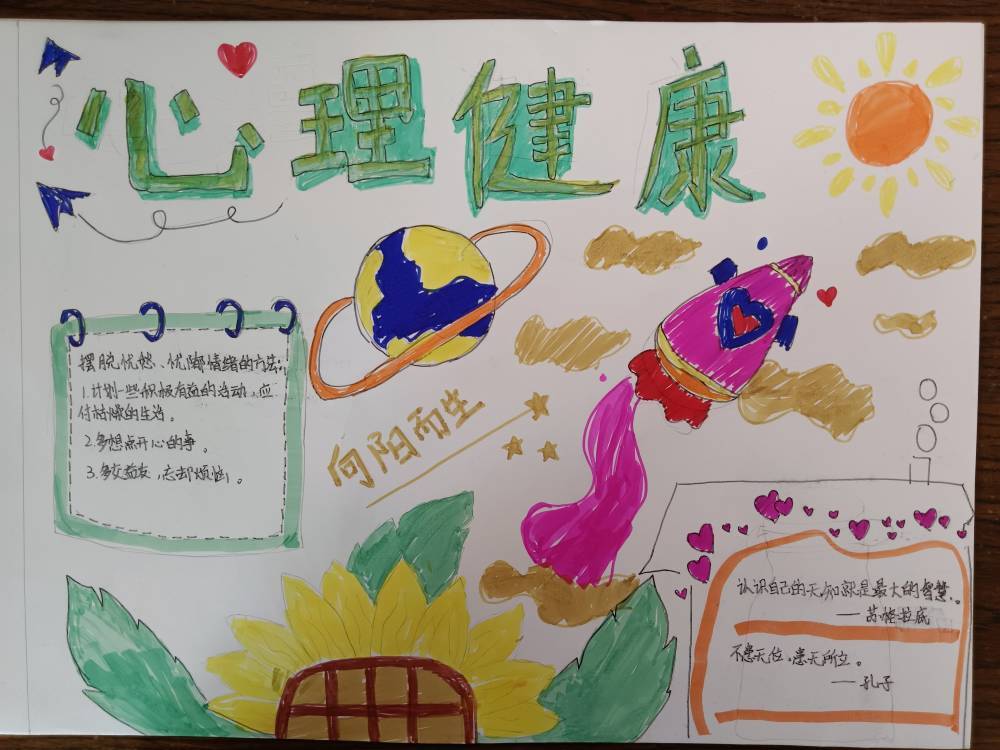 心理健康
摆脱忧愁、忧郁情绪的方法:
1.计划一些积极有益的活动,应
付枯燥的生活。
2.多想点开心的事
3.多交益友,忘却烦恼。
向阳而生
认识自己的无知就是最大的智慧。
——苏格拉底
不患无位,患无所立。
——孔子